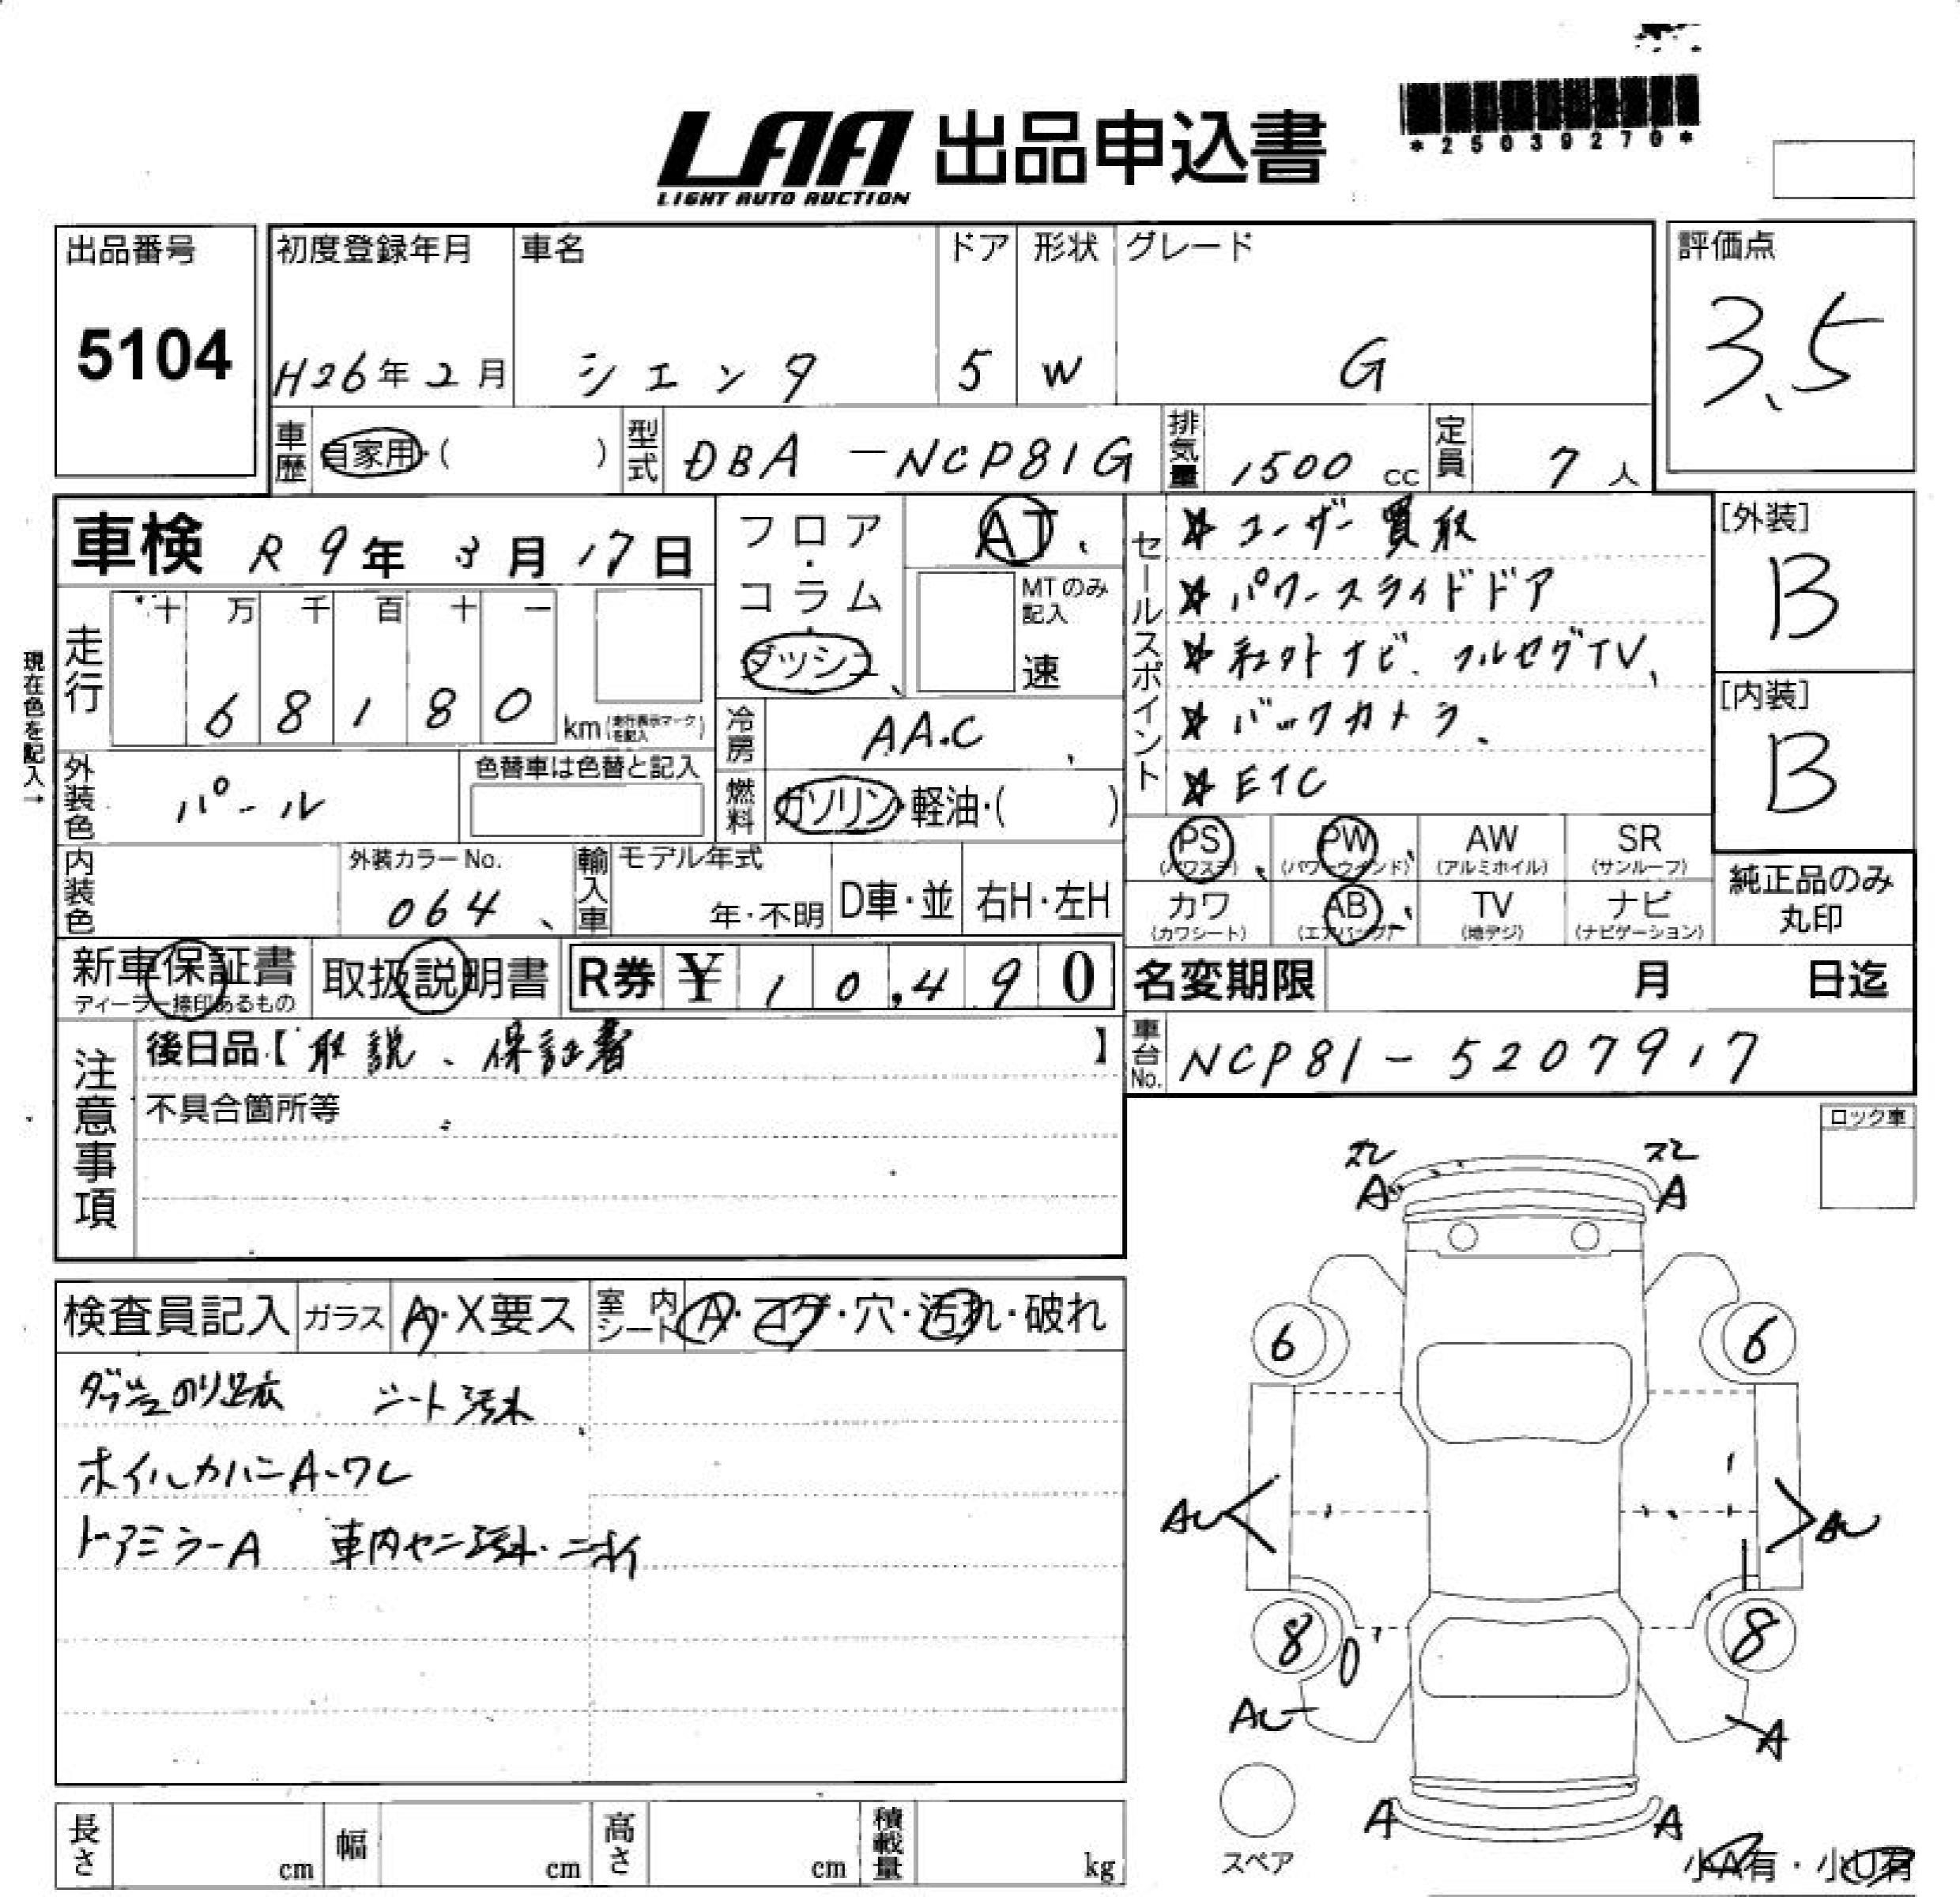 LAA 出品申込書
LIGHT AUTO AUCTION
*25039270*
出品番号
5104
初度登録年月
H26年2月
車名
シエンタ
ドア
5
形状
W
グレード
G
評価点
3.5
車歴
自家用・( )
型式
DBA-NCP81G
排気量
1500 cc
定員
7人
車検 R9年3月17日
フロア・コラム・ダッシュ
AT
MTのみ記入
速
走行
十万千百十一
68180
km(走行表示マークを記入)
現在色を記入→
冷房
AAC
外装色
パール
色替車は色替と記入
燃料
ガソリン・軽油・( )
内装色
外装カラーNo.
064
輸入車
モデル年式
年・不明
D車・並
右H・左H
セールスポイント
☆ユーザー買取
☆パワースライドドア
☆社外ナビ、フルセグTV、
☆バックカメラ、
☆ETC
[外装]
B
[内装]
B
PS
(パワステ)
PW
(パワーウインド)
AW
(アルミホイル)
SR
(サンルーフ)
カワ
(カワシート)
AB
(エアバッグ)
TV
(地デジ)
ナビ
(ナビゲーション)
純正品のみ
丸印
新車保証書
ディーラー捺印あるもの
取扱説明書
R券 ¥10,490
名変期限 月 日迄
注意事項
後日品【取説、保証書】
不具合箇所等
車台No.
NCP81-5207917
ロック車
検査員記入
ガラス
A・X要ス
室内シート
A・コゲ・穴・汚れ・破れ
シート汚れ
ホイルカバーA・ワレ
ドアミラーA 車内ヤニ汚れ・ニオイ
スレ
A
スレ
A
6
6
AU
AU
8
8
AU
A
A
A
スペア
小A有・小U有
長さ
cm
幅
cm
高さ
cm
積載量
kg